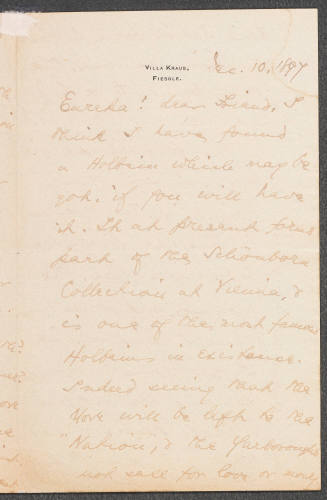 VILLA KRAUS,
FIESOLE.
Dec. 10, 1897
Eureka! dear friend, I
think I have found
a Holbein which may be
yours, if you will have
it. It at present forms
part of the Schönborn
Collection at Vienna, &
is one of the most famous
Holbeins in existence.
Indeed seeing that the
More will be left to the
"Nation", & the Yarboroughs
not sell for love or